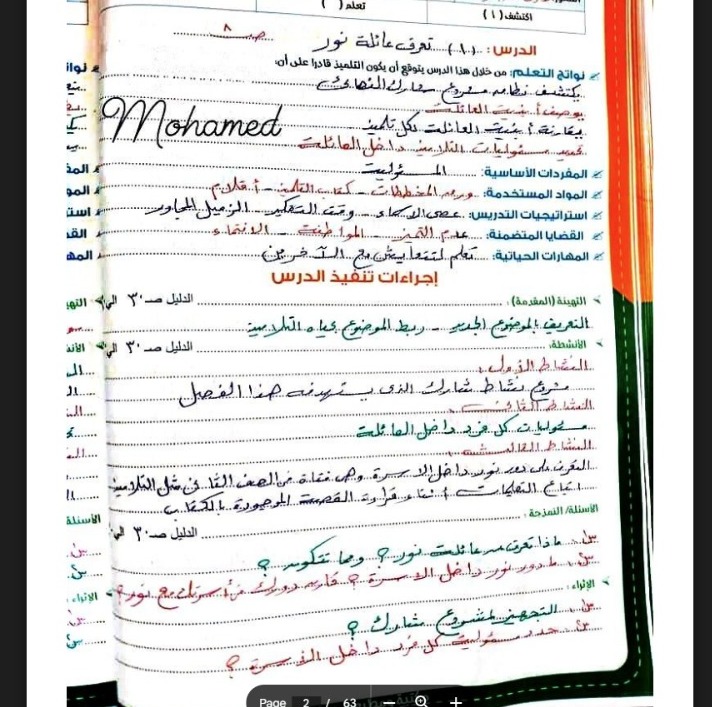 اكتشف (١)
تعلم ( )
الدرس: (١٠) تعرف عائلة نور صـ ٨
نواتج التعلم: من خلال هذا الدرس يتوقع أن يكون التلميذ قادرا على أن:
يكتشف نظامه مشروع شارك النهائي
يوصف أبنية العائلة
يقارنه أبنية العائلة لكل تلميذ
Mohamed
تحديد مسئوليات التلاميذ داخل العائلة
المفردات الأساسية: المسئولية
المواد المستخدمة: ورق المخططات - كتاب التلميذ - أقلام
استراتيجيات التدريس: عصى الأسماء - وقت التفكير - الزميل المجاور
القضايا المتضمنة: عدم التميز - المواطنة - الانتماء
المهارات الحياتية: تعلم لتتعايش مع الآخرين
إجراءات تنفيذ الدرس
التهيئة (المقدمة): الدليل صـ ٣٠ الي
التعريف بالموضوع الجديد - ربط الموضوع بحياه التلاميذ
الأنشطة: الدليل صـ ٣٠ الي
النشاط الأول:
مشروع نشاط شارك الذى يستهدفه هذا الفصل
النشاط الثانى:
مسئوليات كل فرد داخل العائلة
النشاط الثالث:
التعرف على دور نور داخل الاسرة وهى فتاة فى الصف الثانى مثل التلاميذ
اتباع التعليمات أثناء قراءة القصة الموجودة بالكتاب
الأسئلة/ النمذجة: الدليل صـ ٣٠ الي
س١ ماذا تعرف عن عائلة نور؟ ومما تتكون؟
س٢ ما دور نور داخل الاسرة؟ قارن دورك فى أسرتك مع نور؟
الإثراء:
س١ التجهيز لمشروع شارك؟
س٢ حدد مسئولية كل فرد داخل الأسرة؟
Page 2 / 63